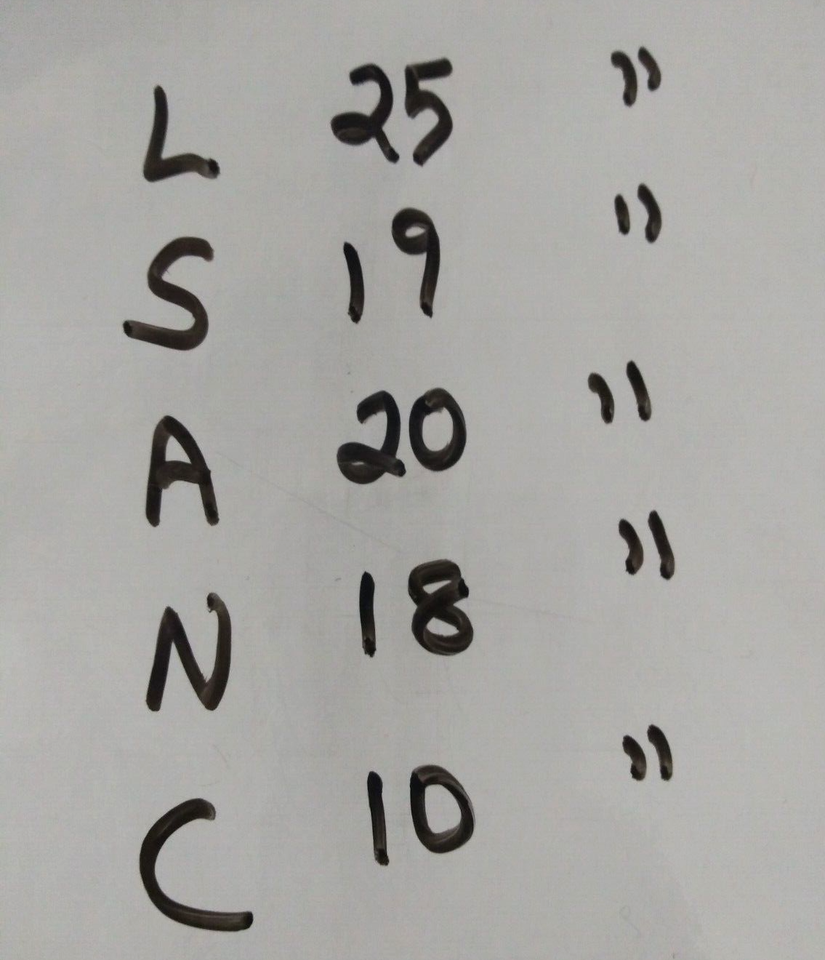 L 25 "
S 19 "
A 20 "
N 18 "
C 10 "